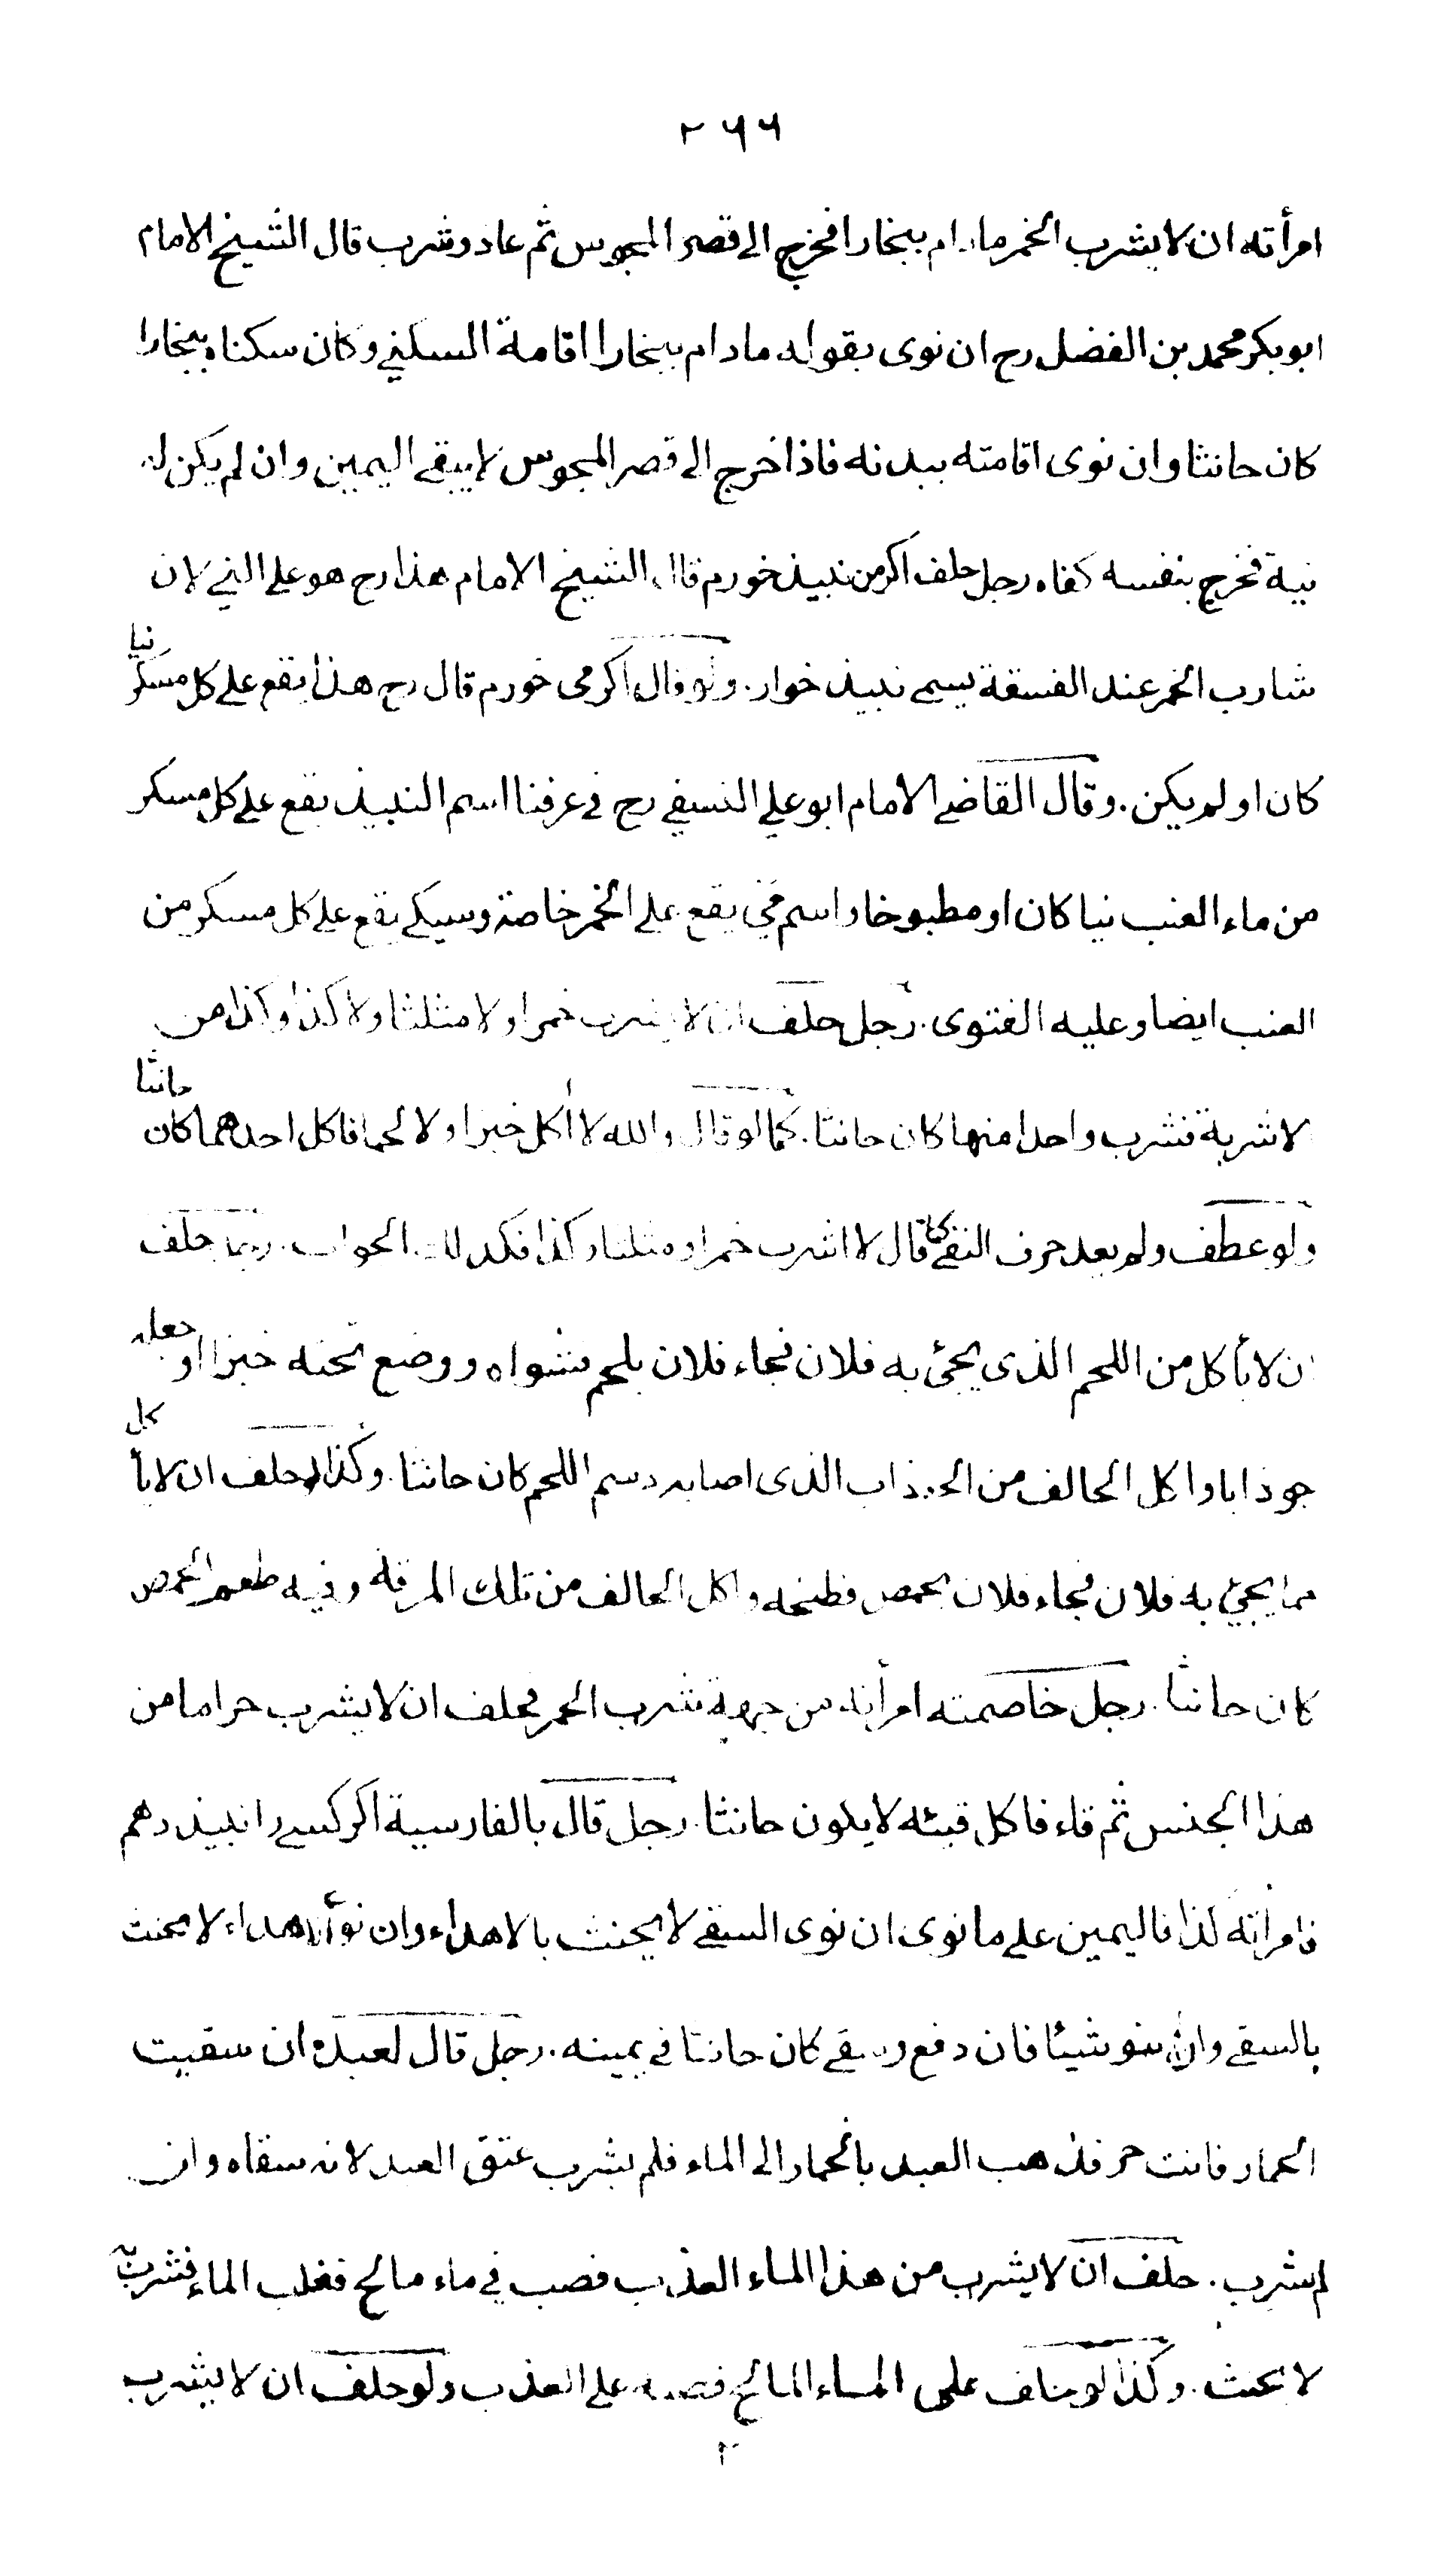 ٢٦٦
امرأته ان لا يشرب الخمر مادام ببخارا فخرج الى قصر المجوس ثم عاد وشرب قال الشيخ الامام
ابوبكر محمد بن الفضل رح ان نوى بقوله مادام ببخارا اقامة السكنى وكان سكناه ببخارا
كان حانثا وان نوى اقامته ببدنه فاذا خرج الى قصر المجوس لا يبقى اليمين وان لم يكن له
نية فخرج بنفسه كفاه رجل حلف اكر من نبيذ خورم قال الشيخ الامام هذا رح هو على الني لان
شارب الخمر عند الفسقة يسمى نبيذ خوار. ولو قال اكر مى خورم قال رح هذا يقع على كل مسكر نيا
كان او لم يكن. وقال القاضى الامام ابو علي النسفي رح في عرفنا اسم النبيذ يقع على كل مسكر
من ماء العنب نيا كان او مطبوخا واسم مى يقع على الخمر خاصة وسيكى يقع على كل مسكر من
العنب ايضا وعليه الفتوى. رجل حلف ان لا يشرب خمرا ولا مثلثا ولا كذا وكذا من
لاشربة فشرب واحدا منها كان حانثا. كما لو قال والله لا أكل خبزا ولا لحما فاكل احدهما كان حانثا
ولو عطف ولم يعد حرف النفي كانه قال لا اشرب خمرا ومثلثا وكذا فكذلك الجواب. رجل حلف
ان لا يأكل من اللحم الذى يجئ به فلان فجاء فلان بلحم فشواه ووضع تحته خبزا او جعله
جوذابا واكل الحالف من الجوذاب الذى اصابه دسم اللحم كان حانثا. وكذا لو حلف ان لا يأكل
مما يجئ به فلان فجاء فلان بحمص فطبخه واكل الحالف من تلك المرقة وفيه طعم الحمص
كان حانثا. رجل خاصمته امرأته من جهة شرب الخمر فحلف ان لا يشرب حراما من
هذا الجنس ثم قاء فاكل قيئه لا يكون حانثا. رجل قال بالفارسية اكر كسے را نبيذ دهم
فامرأته كذا فاليمين على ما نوى ان نوى السقي لا يحنث بالاهداء وان نوى الاهداء لا يحنث
بالسقي وان لم ينو شيئا فان دفع وسقى كان حانثا في يمينه. رجل قال لعبده ان سقيت
الحمار فانت حر فذهب العبد بالحمار الى الماء فلم يشرب عتق العبد لانه سقاه وان
لم يشرب. حلف ان لا يشرب من هذا الماء العذب فصب في ماء مالح فغلب الماء فشربه
لا يحنث. وكذا لو حلف على الماء المالح فصبه على العذب ولو حلف ان لا يشرب